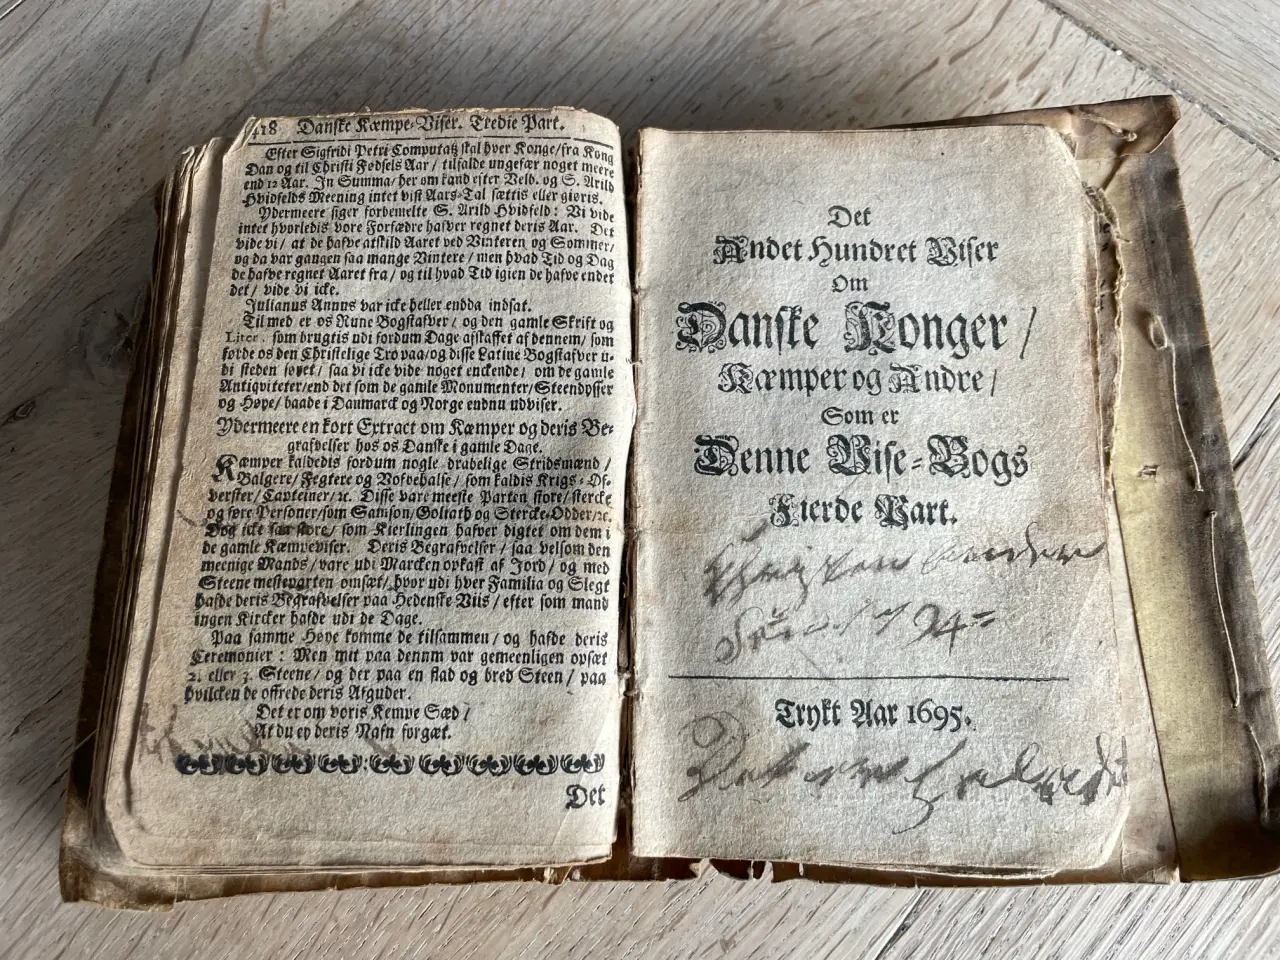 418 Danske Kæmpe-Viser. Tredie Part.
Efter Sigfridi Petri Computatz skal hver Konge/ fra Kong
Dan og til Christi Fødsels Aar/ tilfalde ungefær noget meere
end 12 Aar. In Summa/ her om kand efter Velb. og S. Arild
Hvidfelds Meening intet vist Aars-Tal sættis eller giøris.
Ydermeere siger forbemelte S. Arild Hvidfeld: Vi vide
intet hvorledis vore Forfædre hafver regnet deris Aar. Det
vide vi/ at de hafve atskild Aaret ved Vinteren og Sommer/
og da var gangen saa mange Vintere/ men hvad Tid og Dag
de hafve regnet Aaret fra/ og til hvad Tid igien de hafve endet
det/ vide vi icke.
Julianus Annus var icke heller endda indsat.
Til med er os Rune Bogstafver/ og den gamle Skrift og
som brugtis udi fordum Dage afskaffet af dennem/ som
førde os den Christelige Tro paa/ og disse Latine Bogstafver u-
di steden søvet/ saa vi icke vide noget enckende/ om de gamle
Antiqviteter/ end det som de gamle Monumenter/ Steendysser
og Høye/ baade i Danmarck og Norge endnu udviser.
Ydermeere en kort Extract om Kæmper og deris Be-
grafvelser hos os Danske i gamle Dage.
Kæmper kaldedis fordum nogle drabelige Stridsmænd/
Balgere/ Fegtere og Vofvehalse/ som kaldis Krigs-Of-
verster/ Capteiner/ ꝛc. Disse vare meeste Parten store/ stercke
og føre Personer/ som Samson/ Goliath og Stercke-Odder/ ꝛc.
Dog icke saa store/ som Kierlingen hafver digtet om dem i
de gamle Kæmpeviser. Deris Begrafvelser/ saa velsom den
meenige Mands/ vare udi Marcken opkast af Jord/ og med
Steene mesteparten omsæt/ hvor udi hver Familia og Slegt
hafde deris Begrafvelser paa Hedenske Viis/ efter som mand
ingen Kircker hafde udi de Dage.
Paa samme Høye komme de tilsammen/ og hafde deris
Ceremonier: Men mit paa dennm var gemeenligen opsæt
2. eller 3. Steene/ og der paa en flad og bred Steen/ paa
hvilcken de offrede deris Afguder.
Det er om voris Kempe Sæd/
At du ey deris Nafn forgæt.
Det
Det
Andet Hundret Viser
Om
Danske Konger/
Kæmper og Andre/
Som er
Denne Vise-Bogs
Fierde Part.
Trykt Aar 1695.